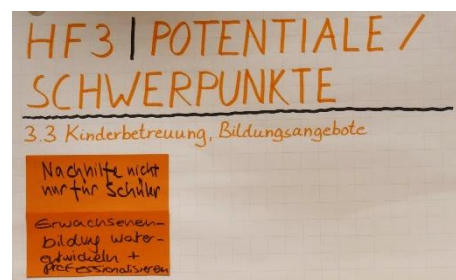 HF3 | POTENTIALE /
SCHWERPUNKTE
3.3 Kinderbetreuung, Bildungsangebote
Nachhilfe nicht
nur für Schüler
Erwachsenen-
bildung weiter-
entwickeln +
professionalisieren